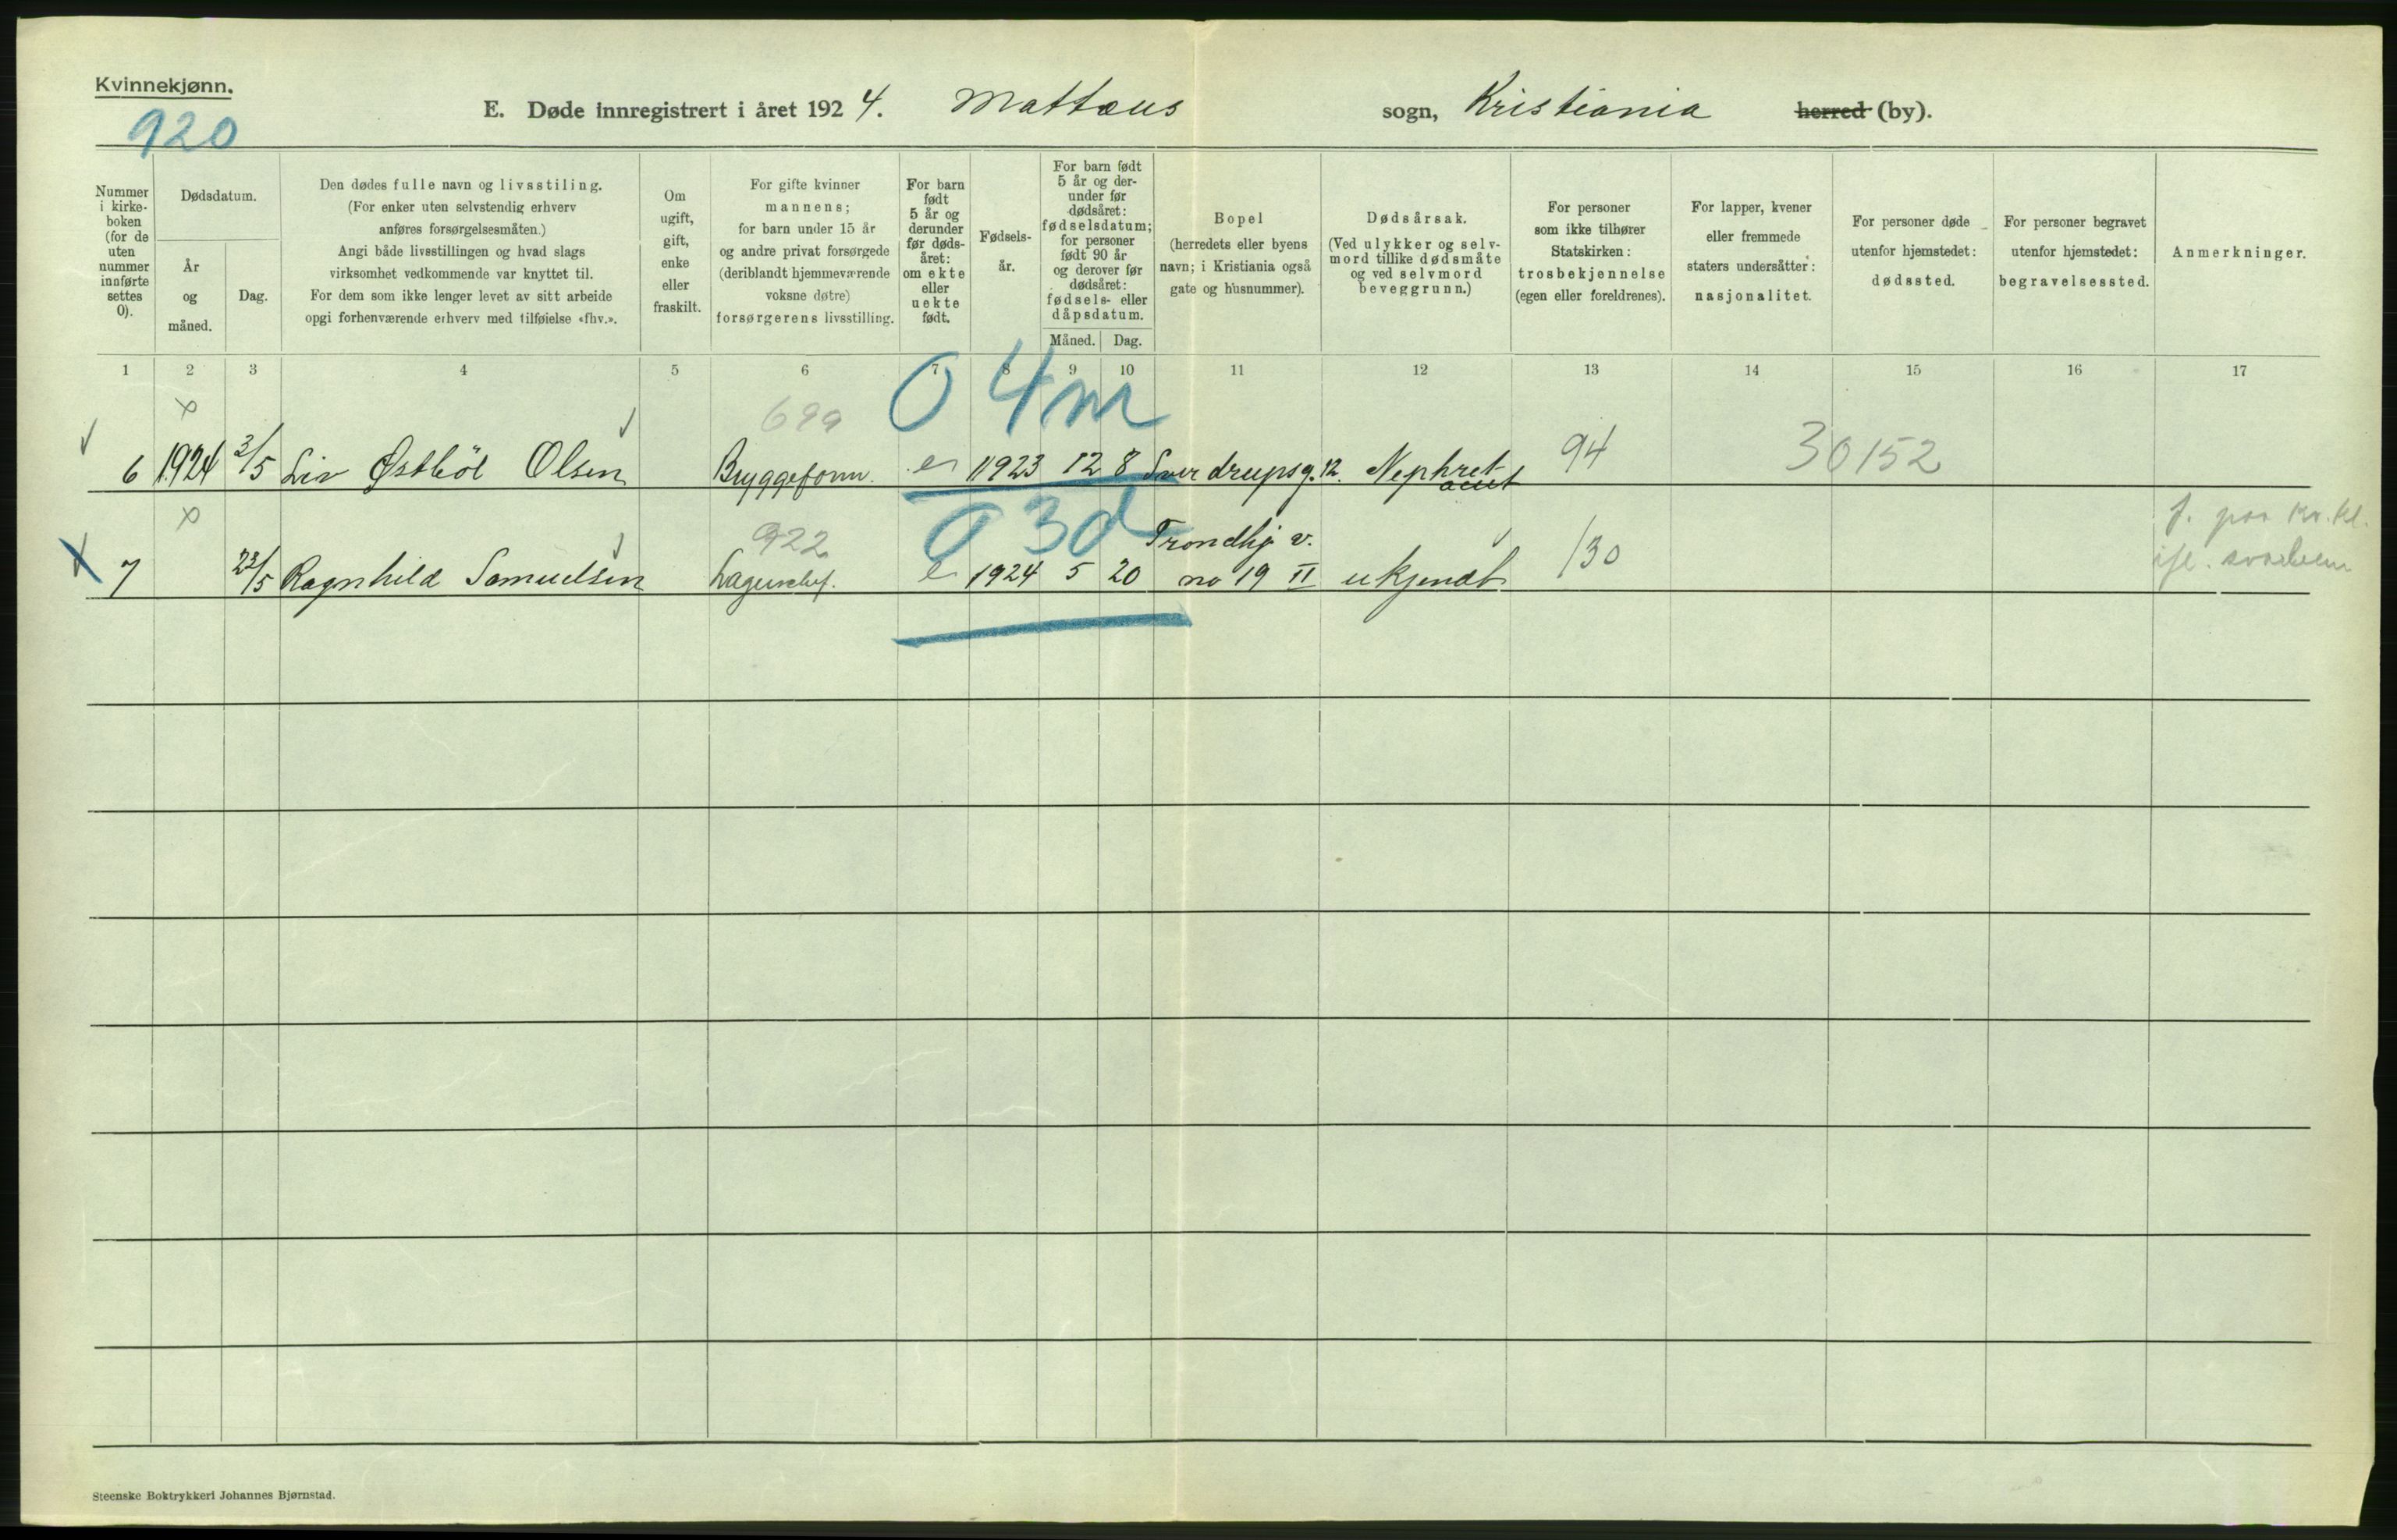 Kvinnekjønn.
920
E. Døde innregistrert i året 1924. Mattæus sogn, Kristiania herred (by).
Nummer i kirke- boken (for de uten nummer innførte settes 0).
Dødsdatum.
År og måned.
Dag.
Den dødes fulle navn og livsstiling.
(For enker uten selvstendig erhverv
anføres forsørgelsesmåten.)
Angi både livsstillingen og hvad slags
virksomhet vedkommende var knyttet til.
For dem som ikke lenger levet av sitt arbeide
opgi forhenværende erhverv med tilføielse «fhv.».
Om ugift, gift, enke eller fraskilt.
For gifte kvinner
mannens;
for barn under 15 år
og andre privat forsørgede
(deriblandt hjemmeværende
voksne døtre)
forsørgerens livsstilling.
For barn født 5 år og derunder før døds- året: om ekte eller uekte født.
Fødsels- år.
For barn født
5 år og der-
under før
dødsåret:
fødselsdatum;
for personer
født 90 år
og derover før
dødsåret:
fødsels- eller
dåpsdatum.
Måned. Dag.
Bopel
(herredets eller byens
navn; i Kristiania også
gate og husnummer).
Dødsårsak.
(Ved ulykker og selv-
mord tillike dødsmåte
og ved selvmord
beveggrunn.)
For personer
som ikke tilhører
Statskirken:
trosbekjennelse
(egen eller foreldrenes).
For lapper, kvener
eller fremmede
staters undersåtter:
nasjonalitet.
For personer døde
utenfor hjemstedet:
dødssted.
For personer begravet
utenfor hjemstedet:
begravelsessted.
Anmerkninger.
1 2 3 4 5 6 7 8 9 10 11 12 13 14 15 16 17
699 0 4m
6 1924 3/5 Liv Østbøl Olsen Bryggeform. e 1923 12 8 Sverdrupsg. 12. Nephret- 94 30152
acut
922 0 3d Trondhj v.
7 22/5 Ragnhild Samuelsen e 1924 5 20 no 19 II ukjendt 130
Steenske Boktrykkeri Johannes Bjørnstad.